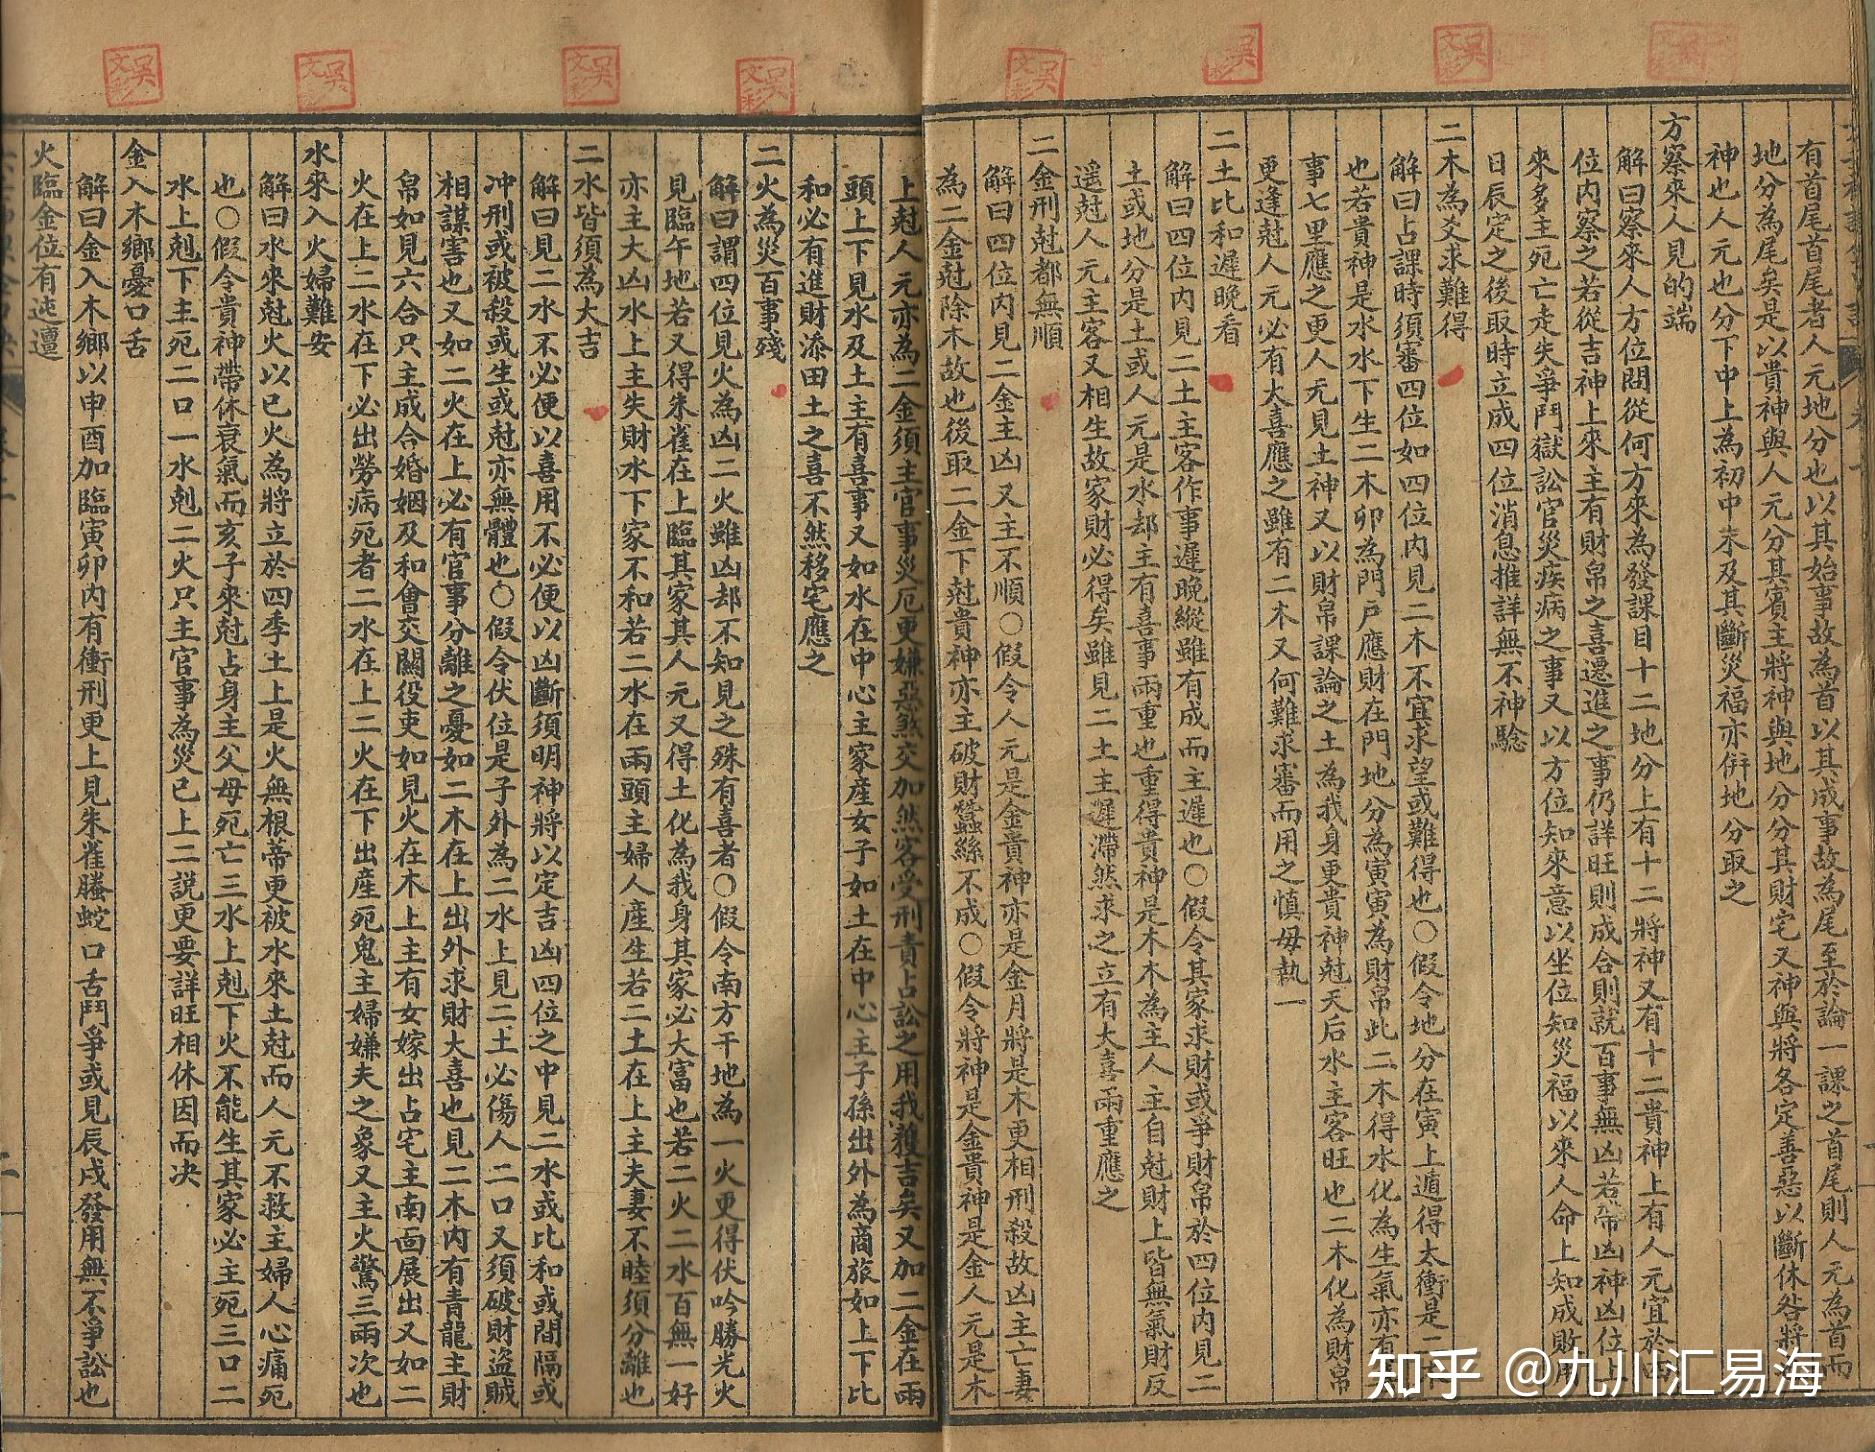 有首尾首尾者人元地分也以其始事故為首以其成事故為尾至於論一課之首尾則人元為首而
地分為尾矣是以貴神與人元分其賓主將神與地分分其財宅又神與將各定善惡以斷休咎將
神也人元也分下中上為初中末及其斷災福亦併地分取之
方察來人見的端
解曰察來人方位問從何方來為發課目十二地分上有十二將神又有十二貴神上有人元宜於四
位內察之若從吉神上來主有財帛之喜遷進之事仍詳旺則成合則就百事無凶若帶凶神凶位上
來多主死亡走失爭鬥獄訟官災疾病之事又以方位知來意以坐位知災福以來人命上知成敗用
日辰定之後取時立成四位消息推詳無不神驗
二木為爻求難得
解曰占課時須審四位如四位內見二木不宜求望或難得也○假令地分在寅上遁得太衝是二
也若貴神是水水下生二木卯為門戶應財在門地分為寅寅為財帛此二木得水化為生氣亦有
事七里應之更人元見土神又以財帛課論之土為我身更貴神尅天后水主客旺也二木化為財帛
更逢尅人元必有大喜應之雖有二木又何難求審而用之慎毋執一
二土比和遲晚看
解曰四位內見二土主客作事遲晚縱雖有成而主遲也○假令其家求財或爭財帛於四位內見二
土或地分是土或人元是水却主有喜事兩重也重得貴神是木木為主人主自尅財上皆無氣財反
遥尅人元主客又相生故家財必得矣雖見二土主遲滯然求之立有大喜兩重應之
二金刑尅都無順
解曰四位內見二金主凶又主不順○假令人元是金貴神亦是金月將是木更相刑殺故凶主亡妻
為二金尅除木故也後取二金下尅貴神亦主破財蠶絲不成○假令將神是金貴神是金人元是木
上尅人元亦為二金須主官事災厄更嫌惡煞交加然客受刑責占訟之用我獲吉矣又加二金在兩
頭上下見水及土主有喜事又如水在中心主家産女子如土在中心主子孫出外為商旅如上下比
和必有進財添田土之喜不然移宅應之
二火為災百事殘
解曰謂四位見火為凶二火雖凶却不知見之殊有喜者○假令南方干地為一火更得伏吟勝光火
見臨午地若又得朱雀在上臨其家其人元又得土化為我身其家必大富也若二火二水百無一好
亦主大凶水上主失財水下家不和若二水在兩頭主婦人產生若二土在上主夫妻不睦須分離也
二水皆須為大吉
解曰見二水不必便以喜用不必便以凶斷須明神將以定吉凶四位之中見二水或比和或間隔或
冲刑或被殺或生或尅亦無體也○假令伏位是子外為二水上見二土必傷人二口又須破財盜賊
相謀害也又如二火在上必有官事分離之憂如二木在上出外求財大喜也見二木內有青龍主財
帛如見六合只主成合婚姻及和會交關役吏如見火在木上主有女嫁出占宅主南面展出又如二
火在上二水在下必出勞病死者二水在上二火在下出産死鬼主婦嫌夫之象又主火驚三兩次也
水來入火婦難安
解曰水來尅火以巳火為將立於四季土上是火無根蒂更被水來土尅而人元不救主婦人心痛死
也○假令貴神帶休衰氣而亥子來尅占身主父母死亡三水上剋下火不能生其家必主死三口二
水上剋下主死二口一水剋二火只主官事為災已上二說更要詳旺相休因而决
金入木鄉憂口舌
解曰金入木鄉以申酉加臨寅卯內有衝刑更上見朱雀螣蛇口舌鬥爭或見辰戌發用無不爭訟也
火臨金位有迍邅
吳文彩
吳文彩
吳文彩
吳文彩
吳文彩
知乎 @九川汇易海